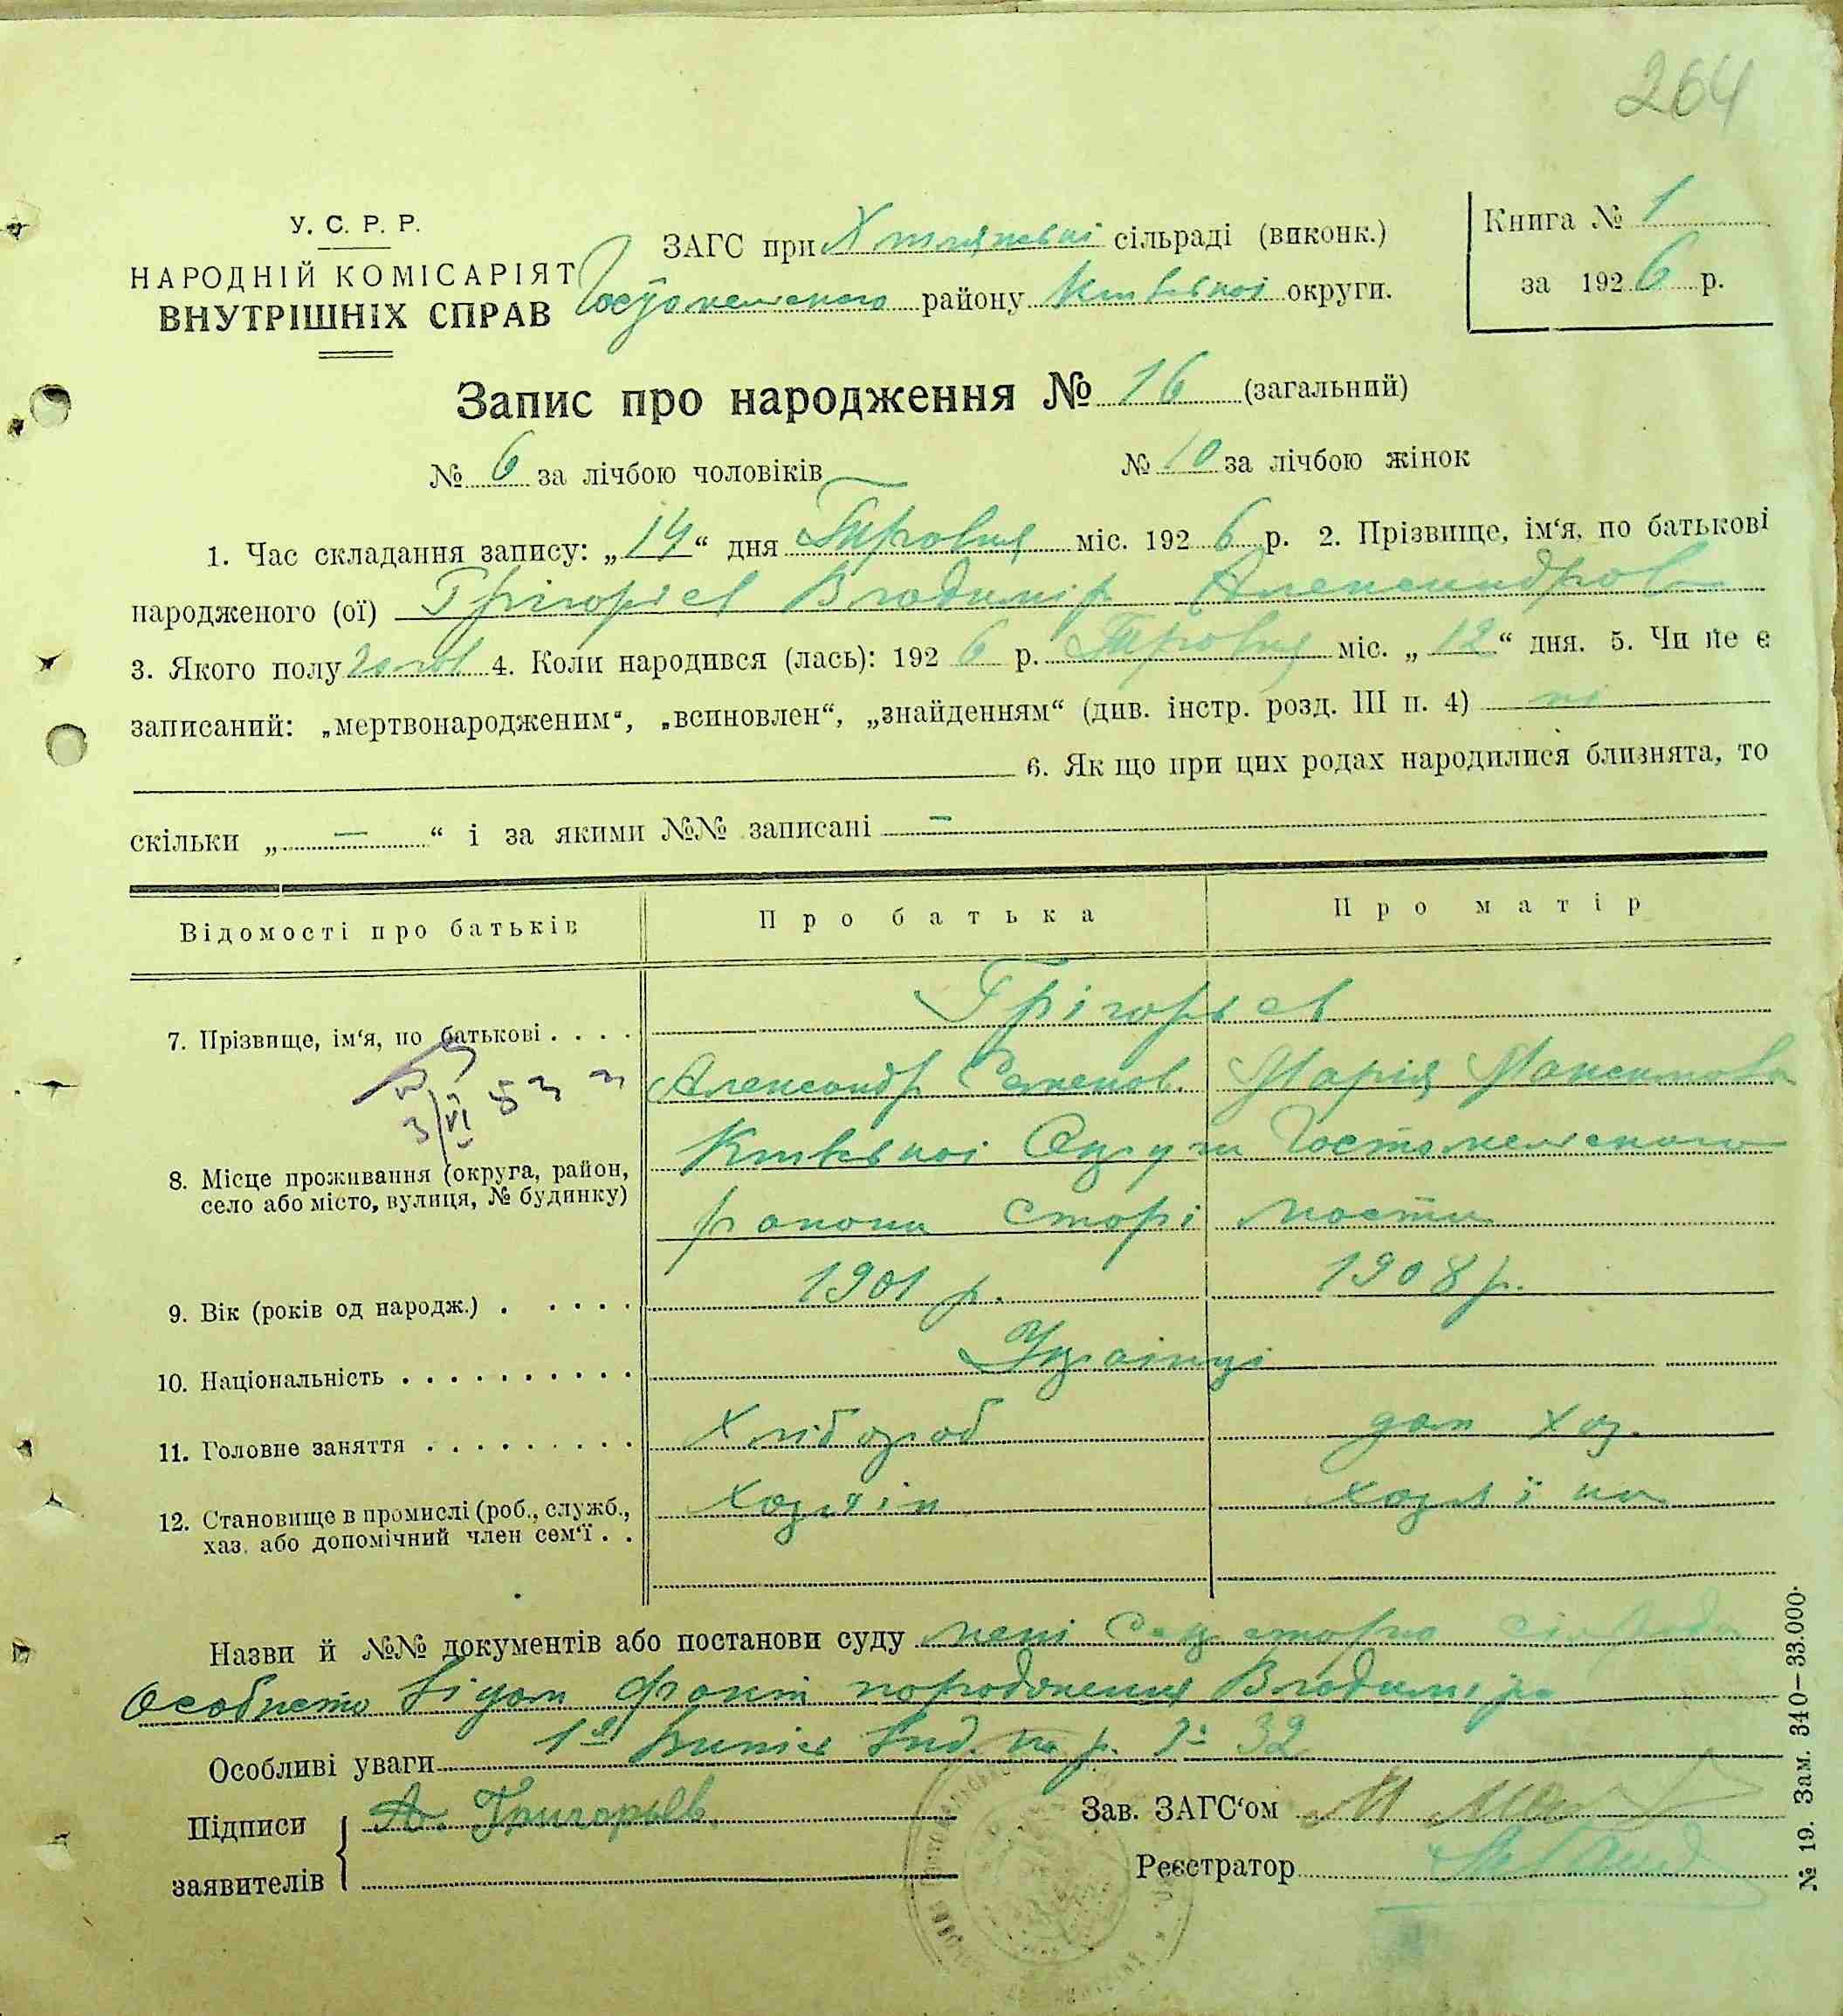 264
У. С. Р. Р.
НАРОДНІЙ КОМІСАРІЯТ
ВНУТРІШНІХ СПРАВ
ЗАГС при сільраді (виконк.)
району округи.
Книга № 1
за 1926 р.
Запис про народження № 16 (загальний)
№ 6 за лічбою чоловіків № 10 за лічбою жінок
1. Час складання запису: „14“ дня міс. 1926 р. 2. Прізвище, ім‘я, по батькові
народженого (ої) Грігорієв Владимір Александров
3. Якого полу 4. Коли народився (лась): 1926 р. міс. „12“ дня. 5. Чи не є
записаний: „мертвонародженим“, „всиновлен“, „знайденням“ (див. інстр. розд. III п. 4) ні
6. Як що при цих родах народилися близнята, то
скільки „ — “ і за якими №№ записані —
Відомості про батьків Про батька Про матір
7. Прізвище, ім‘я, по батькові . . . . Грігорьєв
Александр Семенов. Марія Максимова
3/VI 53
8. Місце проживання (округа, район,
село або місто, вулиця, № будинку)
9. Вік (років од народж.) . . . . . 1901 р. 1908 р.
10. Національність . . . . . . . . . . Українці
11. Головне заняття . . . . . . . . . Хлібороб дом хоз.
12. Становище в промислі (роб., служб.,
хаз. або допомічний член сем‘ї . . хозяїн хозяїна
Назви й №№ документів або постанови суду мені
Особисто відом факт народження Владиміра
Особливі уваги 32
Підписи
заявителів
А. Григорьев.
Зав. ЗАГС‘ом
Реєстратор
№ 19. Зам. 340—33.000.